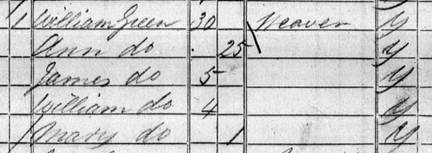 1 William Green 30 Weaver y
Ann do 25 y
James do 5 y
William do 4 y
Mary do 1 y